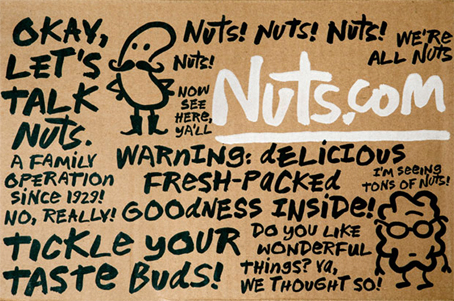 OKAY,
LET'S
TALK
NUTS.
A FAMILY
OPERATION
SINCE 1929!
NO, REALLY!
TICKLE YOUR
TASTE BUDS!
NUTS!
NOW
SEE
HERE,
YA'LL
NUTS! NUTS! NUTS!
WE'RE
ALL NUTS
NUTS.COM
WARNING: DELICIOUS
FRESH-PACKED
GOODNESS INSIDE!
I'M SEEING
TONS OF NUTS!
DO YOU LIKE
WONDERFUL
THINGS? YA,
WE THOUGHT SO!